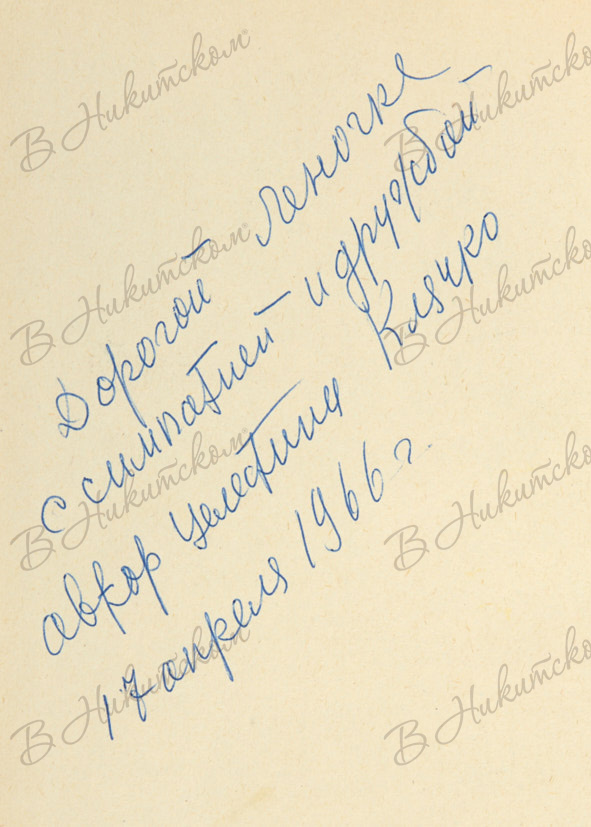 Дорогой Леночке
с симпатией и дружбой
автор Целестина Клячко
17 апреля 1966 г.
В Никитском
В Никитском
В Никитском
В Никитском
В Никитском
В Никитском
В Никитском
В Никитском